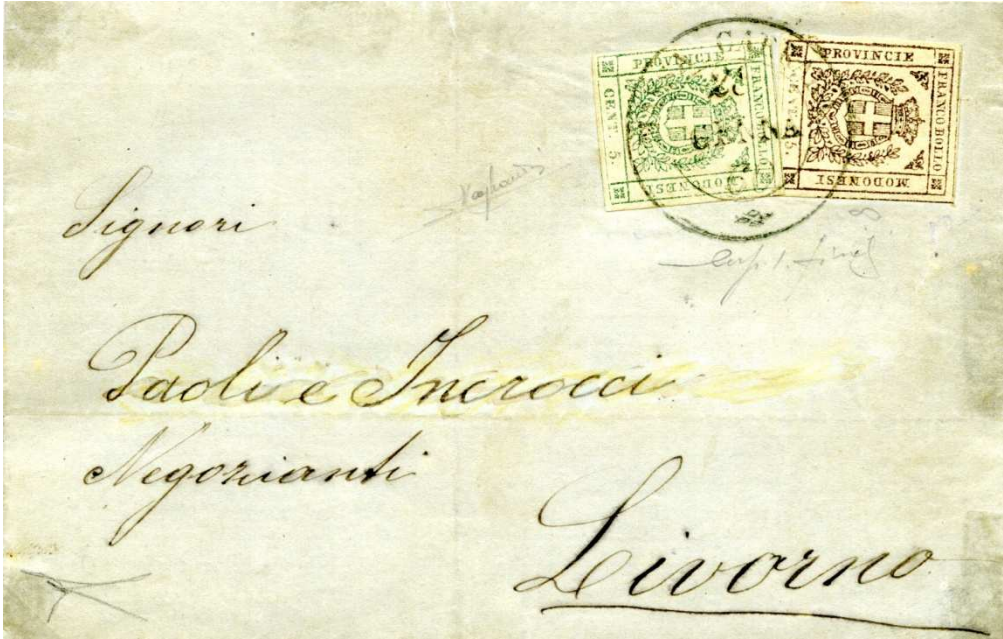 PROVINCIE
FRANCO BOLLO
MODONESI
CENT. 5
PROVINCIE
FRANCO BOLLO
MODONESI
Signori
Paoli e Incrocci
Negozianti
Livorno